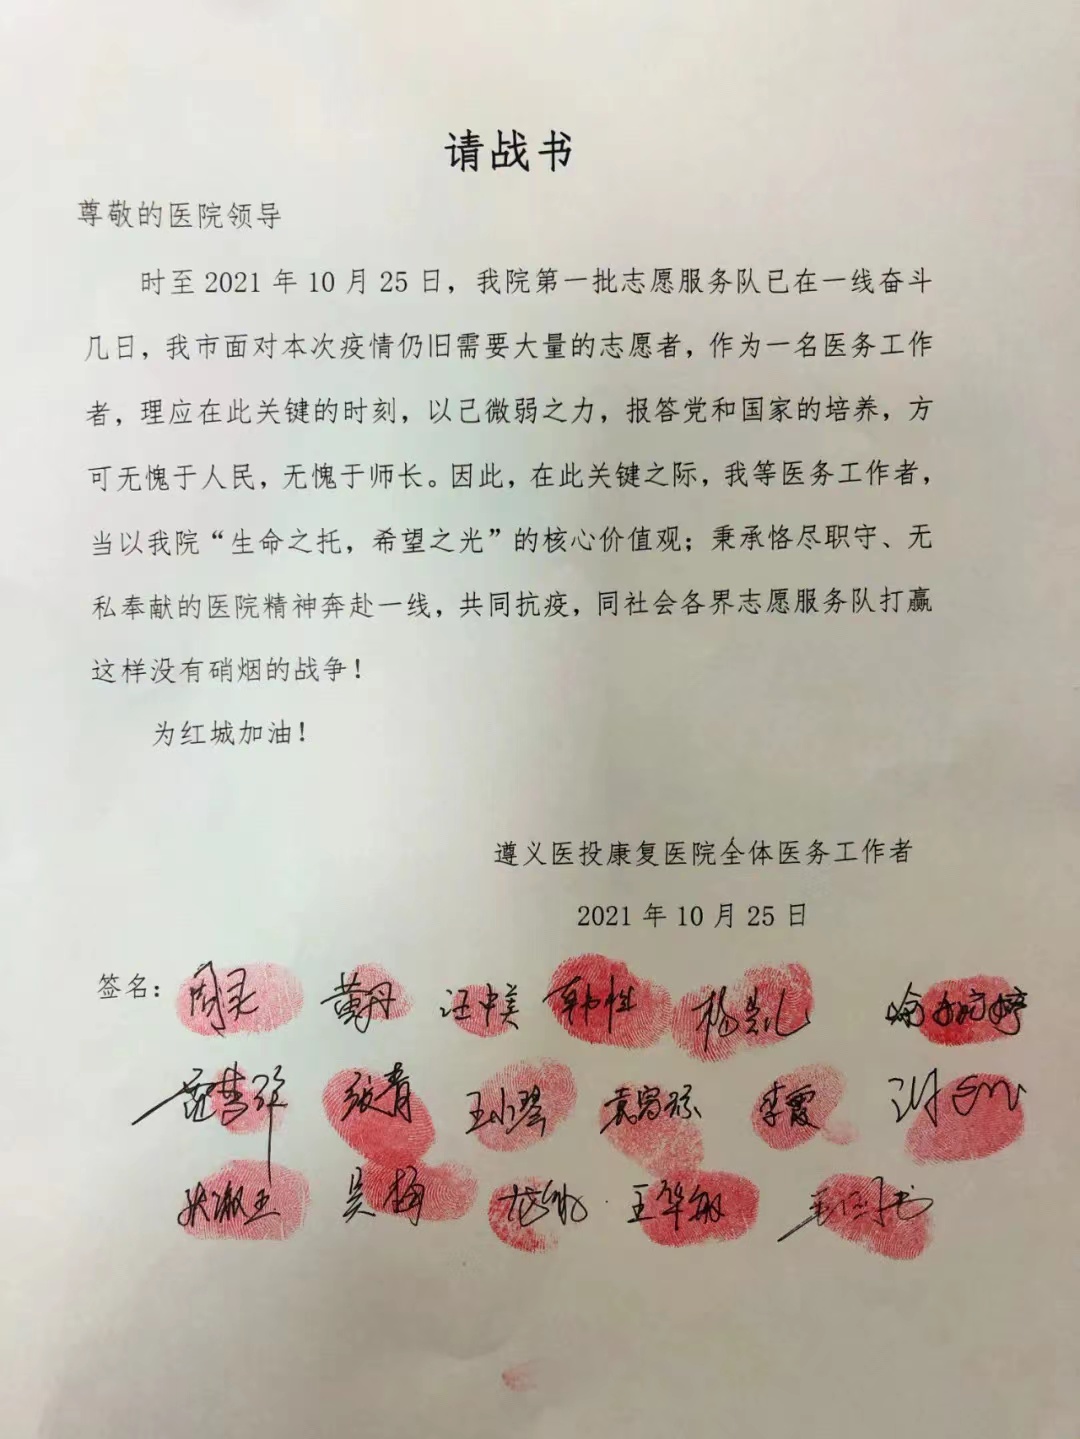 请战书
尊敬的医院领导
时至 2021 年 10 月 25 日，我院第一批志愿服务队已在一线奋斗
几日，我市面对本次疫情仍旧需要大量的志愿者，作为一名医务工作
者，理应在此关键的时刻，以己微弱之力，报答党和国家的培养，方
可无愧于人民，无愧于师长。因此，在此关键之际，我等医务工作者，
当以我院“生命之托，希望之光”的核心价值观；秉承恪尽职守、无
私奉献的医院精神奔赴一线，共同抗疫，同社会各界志愿服务队打赢
这样没有硝烟的战争！
为红城加油！
遵义医投康复医院全体医务工作者
2021 年 10 月 25 日
签名： 周灵 黄丹 汪中美 韩性 杨凯
张青 王小琴 袁富琼 李霞
张淑王 吴梅 王华敏